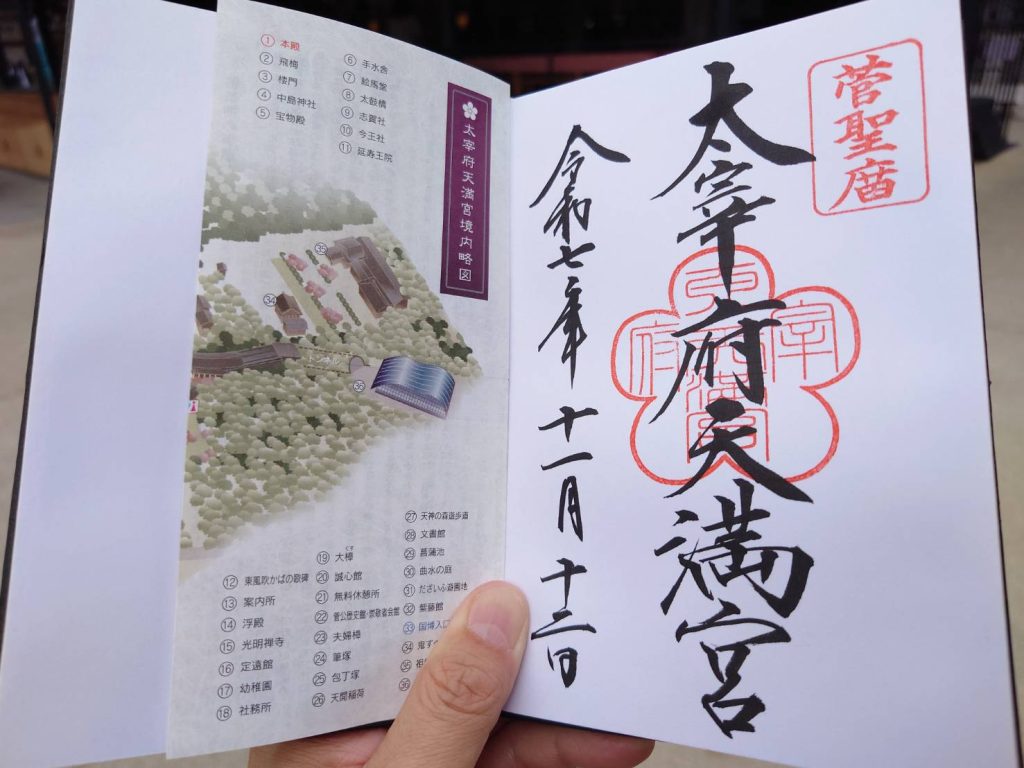 太宰府天満宮境内略図
① 本殿
② 飛梅
③ 楼門
④ 中島神社
⑤ 宝物殿
⑥ 手水舎
⑦ 絵馬堂
⑧ 太鼓橋
⑨ 志賀社
⑩ 今王社
⑪ 延寿王院
㉟
㉞
トンネル
㊱
⑫ 東風吹かばの歌碑
⑬ 案内所
⑭ 浮殿
⑮ 光明禅寺
⑯ 定遠館
⑰ 幼稚園
⑱ 社務所
⑲ 大樟
くす
⑳ 誠心館
㉑ 無料休憩所
㉒ 菅公歴史館・崇敬者会館
㉓ 夫婦樟
㉔ 筆塚
㉕ 包丁塚
㉖ 天開稲荷
㉗ 天神の森遊歩道
㉘ 文書館
㉙ 菖蒲池
㉚ 曲水の庭
㉛ だざいふ遊園地
㉜ 紫藤館
㉝ 国博入口
㉞ 鬼す
㉟ 祖
㊱
菅聖庿
太宰府天満宮
令和七年十一月十二日